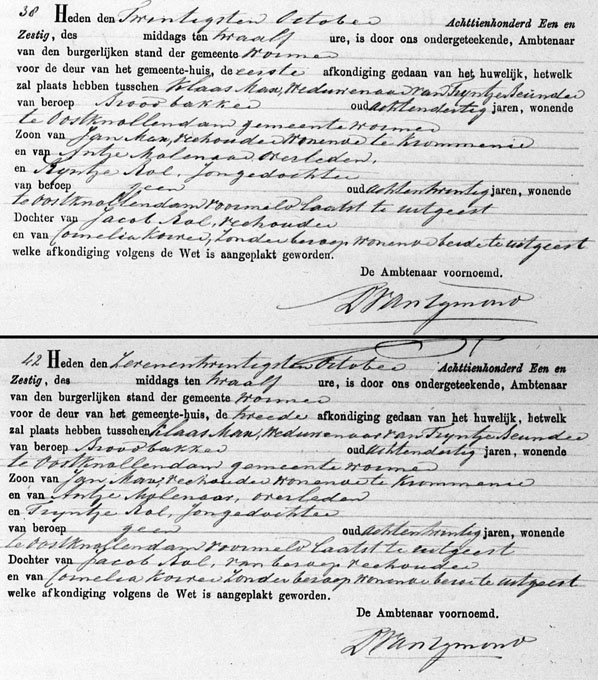 38 Heden den Twintigsten October Achttienhonderd Een en
Zestig, des middags ten twaalf ure, is door ons ondergeteekende, Ambtenaar
van den burgerlijken stand der gemeente Wormer
voor de deur van het gemeente-huis, de eerste afkondiging gedaan van het huwelijk, hetwelk
zal plaats hebben tusschen Klaas Max, Weduwenaar van Tryntje Beunder
van beroep Broodbakker oud achtendertig jaren, wonende
te Oostknollendam gemeente Wormer
Zoon van Jan Max, veehouder wonende te Krommenie
en van Antje Molenaar overleden,
en Tryntje Kol, Jongedochter
van beroep geen oud achtentwintig jaren, wonende
te Oostknollendam voormeld laatst te uitgeest
Dochter van Jacob Kol, veehouder
en van Cornelia zonder beroep wonende beide te uitgeest
welke afkondiging volgens de Wet is aangeplakt geworden.
De Ambtenaar voornoemd.
42 Heden den Zevenentwintigsten October Achttienhonderd Een en
Zestig, des middags ten twaalf ure, is door ons ondergeteekende, Ambtenaar
van den burgerlijken stand der gemeente Wormer
voor de deur van het gemeente-huis, de tweede afkondiging gedaan van het huwelijk, hetwelk
zal plaats hebben tusschen Klaas Max, Weduwenaar van Tryntje Beunder
van beroep Broodbakker oud achtendertig jaren, wonende
te Oostknollendam gemeente Wormer
Zoon van Jan Max, veehouder wonende te Krommenie
en van Antje Molenaar, overleden
en Tryntje Kol, Jongedochter
van beroep geen oud achtentwintig jaren, wonende
te Oostknollendam voormeld laatst te uitgeest
Dochter van Jacob Kol, van beroep veehouder
en van Cornelia zonder beroep wonende beide te uitgeest
welke afkondiging volgens de Wet is aangeplakt geworden.
De Ambtenaar voornoemd.